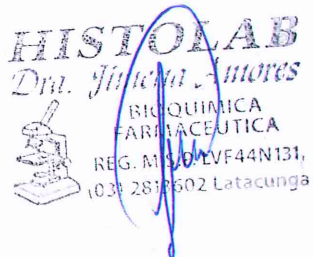 HISTOLAB
Dra. Jimena Amores
BIOQUIMICA
FARMACEUTICA
REG. M.S.P. LVF44N131,
(03) 2813602 Latacunga